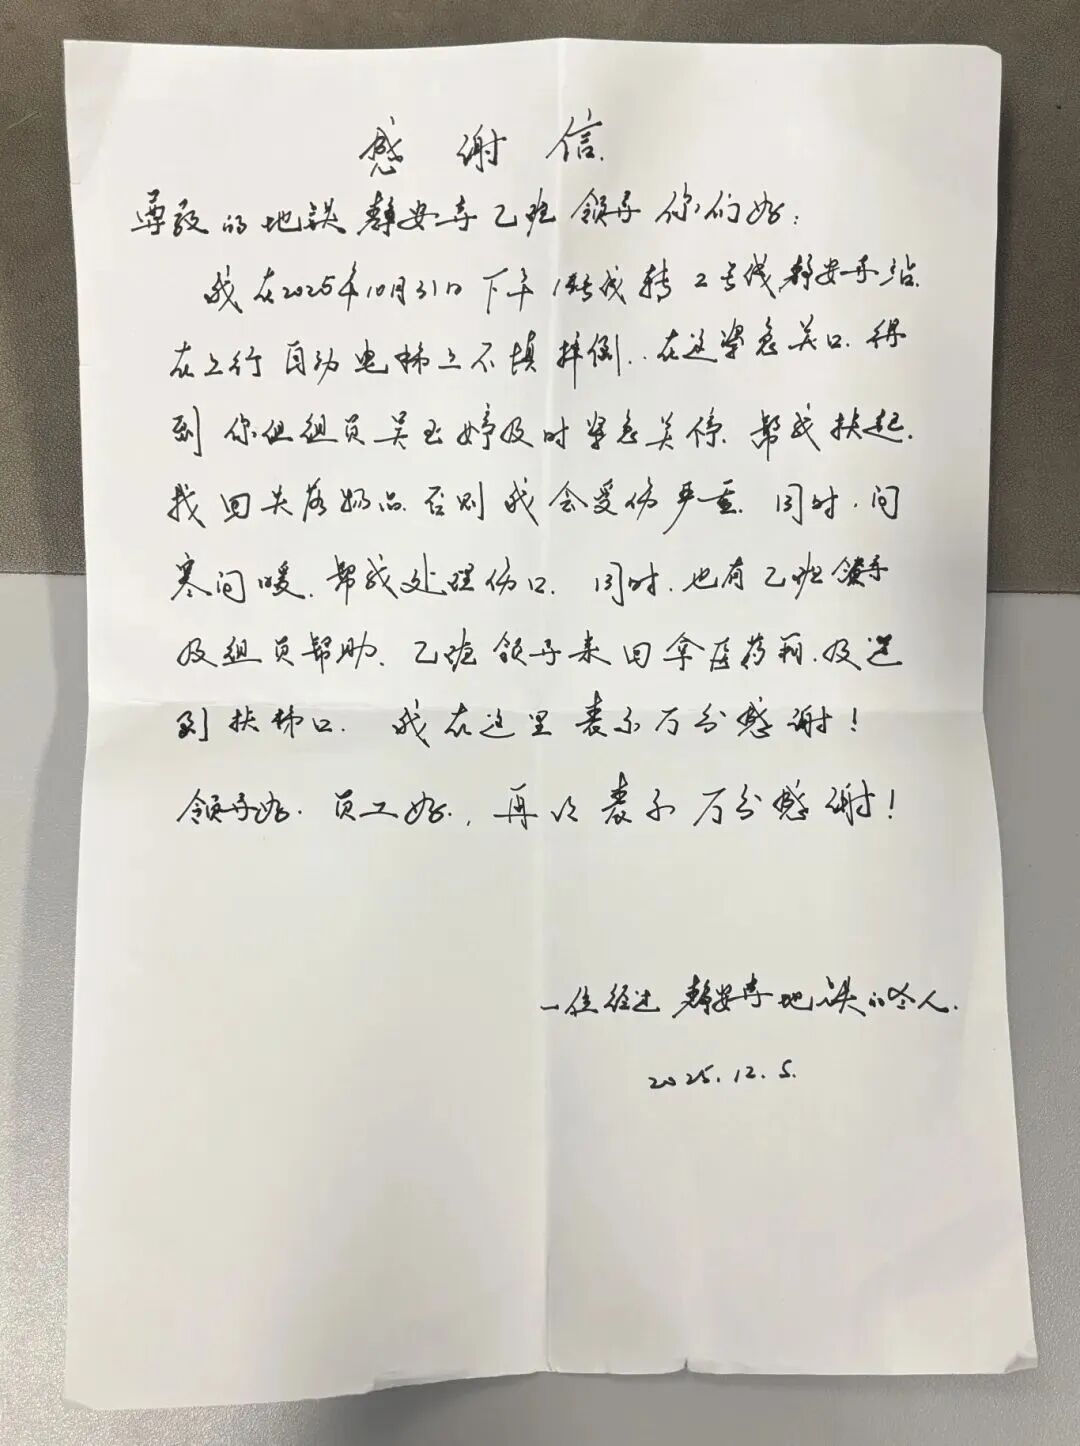 感谢信.
尊敬的地铁静安寺乙班领导你们好:
我在2025年10月31日下午1号线转2号线静安寺站.
在上行自动电梯上不慎摔倒..在这紧急关口.得
到你组组员吴玉婷及时紧急关停.帮我扶起.
找回失落物品.否则我会受伤严重.同时.问
寒问暖.帮我处理伤口.同时.也有乙班领导
及组员帮助.乙班领导来回拿医药箱.及送
到扶梯口.我在这里表示万分感谢!
领导好.员工好.,再次表示万分感谢!
一位经过静安寺地铁的老人.
2025.12.5.